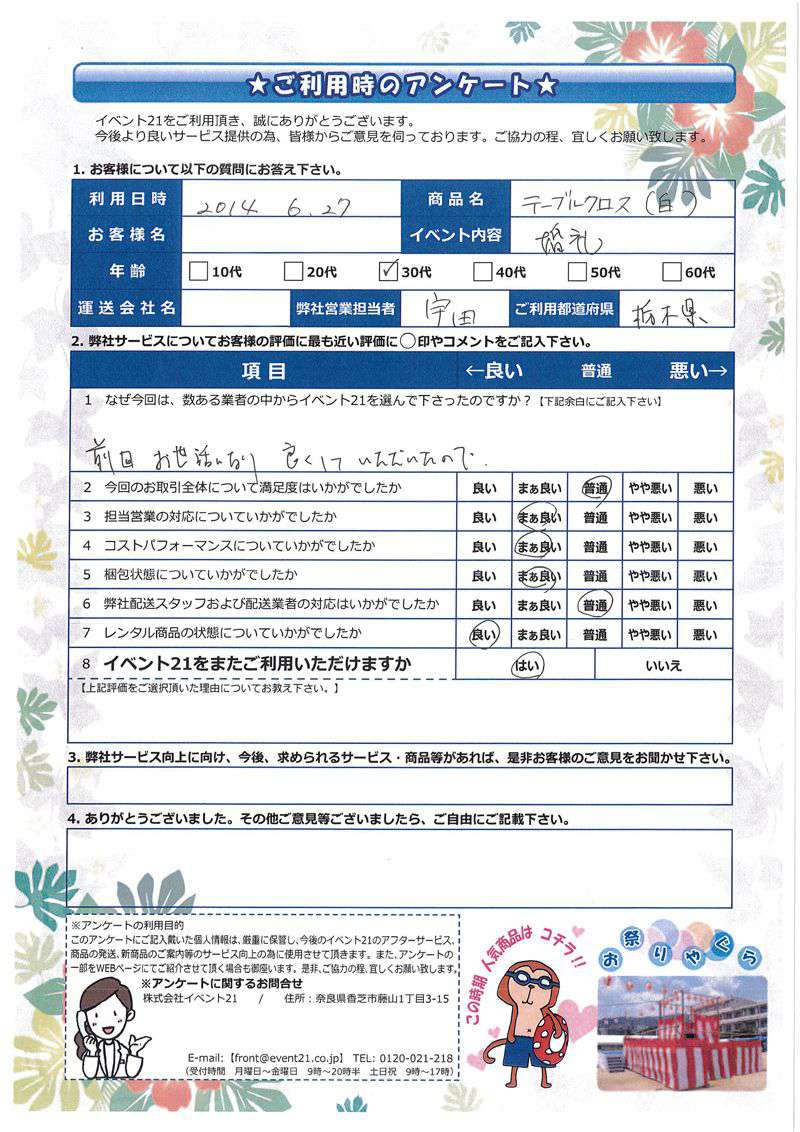 ★ご利用時のアンケート★
イベント21をご利用頂き、誠にありがとうございます。
今後より良いサービス提供の為、皆様からご意見を伺っております。ご協力の程、宜しくお願い致します。
1. お客様について以下の質問にお答え下さい。
利用日時 2014 6.27 商品名 テーブルクロス(白)
お客様名 イベント内容 婚礼
年齢 10代 20代 ✓30代 40代 50代 60代
運送会社名 弊社営業担当者 宇田 ご利用都道府県 栃木県
2. 弊社サービスについてお客様の評価に最も近い評価に○印やコメントをご記入下さい。
項目 ←良い 普通 悪い→
1 なぜ今回は、数ある業者の中からイベント21を選んで下さったのですか？【下記余白にご記入下さい】
前回 お世話になり 良くして いただいたので.
2 今回のお取引全体について満足度はいかがでしたか 良い まぁ良い 普通 やや悪い 悪い
3 担当営業の対応についていかがでしたか 良い まぁ良い 普通 やや悪い 悪い
4 コストパフォーマンスについていかがでしたか 良い まぁ良い 普通 やや悪い 悪い
5 梱包状態についていかがでしたか 良い まぁ良い 普通 やや悪い 悪い
6 弊社配送スタッフおよび配送業者の対応はいかがでしたか 良い まぁ良い 普通 やや悪い 悪い
7 レンタル商品の状態についていかがでしたか 良い まぁ良い 普通 やや悪い 悪い
8 イベント21をまたご利用いただけますか はい いいえ
【上記評価をご選択頂いた理由についてお教え下さい。】
3. 弊社サービス向上に向け、今後、求められるサービス・商品等があれば、是非お客様のご意見をお聞かせ下さい。
4. ありがとうございました。その他ご意見等ございましたら、ご自由にご記載下さい。
※アンケートの利用目的
このアンケートにご記入戴いた個人情報は、厳重に保管し、今後のイベント21のアフターサービス、
商品の発送、新商品のご案内等のサービス向上の為に使用させて頂きます。また、アンケートの
一部をWEBページにてご紹介させて頂く場合も御座います。是非、ご協力の程、宜しくお願い致します。
※アンケートに関するお問合せ
株式会社イベント21 / 住所：奈良県香芝市藤山1丁目3-15
E-mail:【front@event21.co.jp】 TEL: 0120-021-218
(受付時間 月曜日～金曜日 9時～20時半 土日祝 9時～17時)
この時期 人気商品は コチラ!!
お祭りやぐら